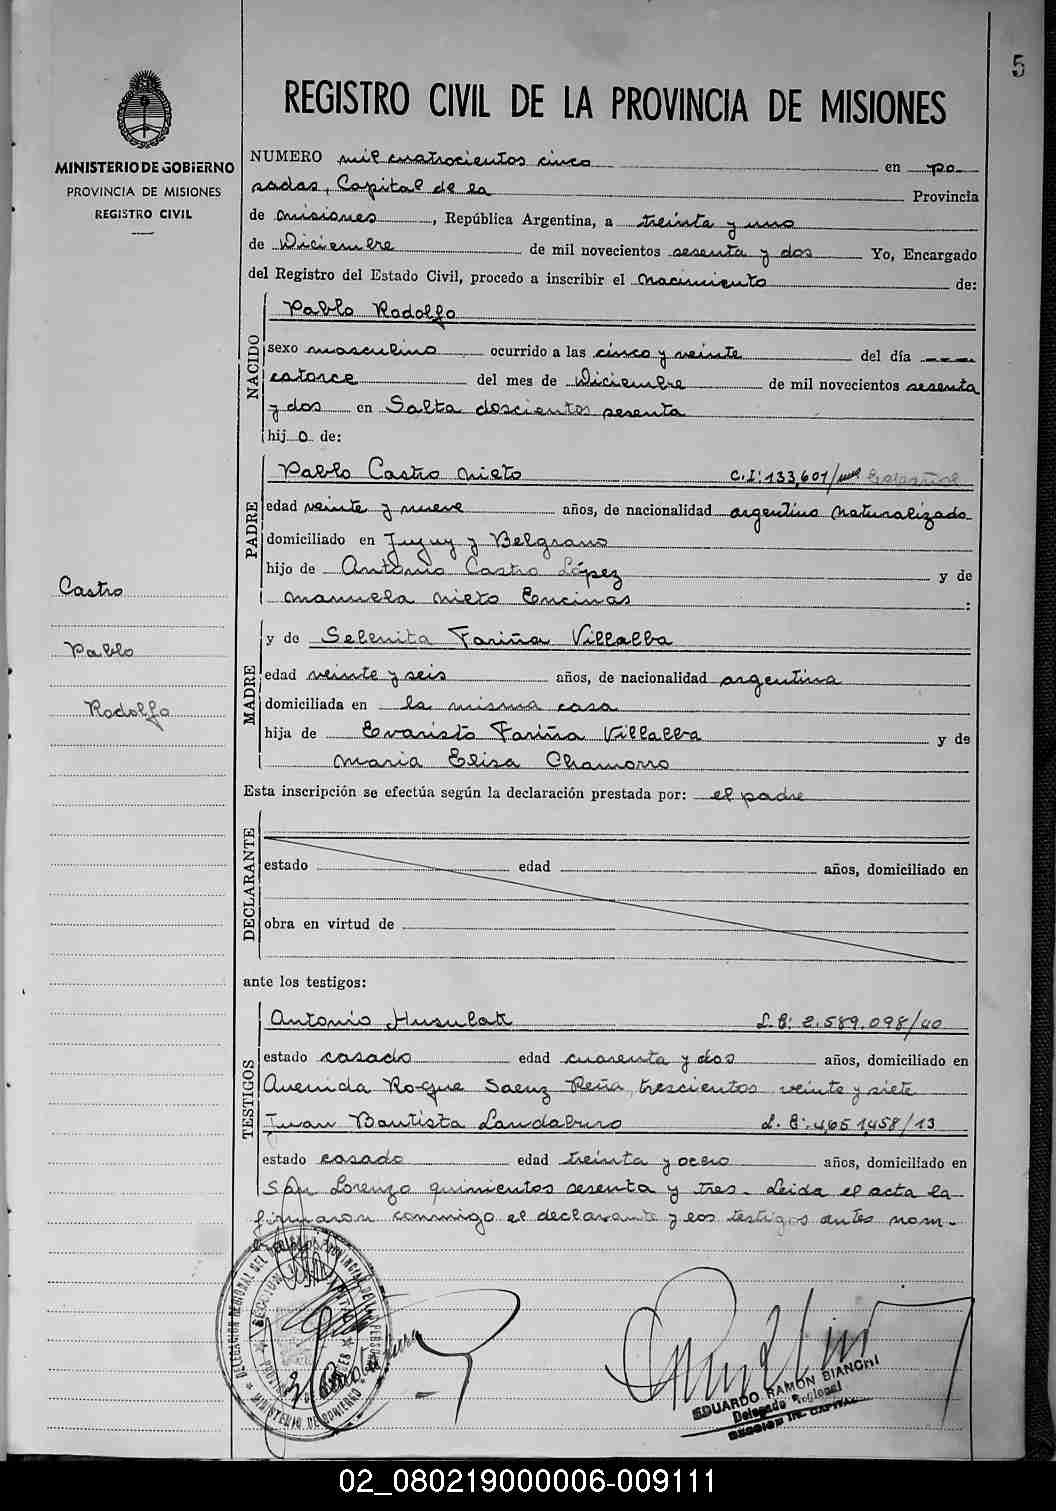 5
REGISTRO CIVIL DE LA PROVINCIA DE MISIONES
MINISTERIO DE GOBIERNO
PROVINCIA DE MISIONES
REGISTRO CIVIL
NUMERO mil cuatrocientos cinco en Po
sadas, Capital de la Provincia
de Misiones, República Argentina, a treinta y uno
de Diciembre de mil novecientos sesenta y dos Yo, Encargado
del Registro del Estado Civil, procedo a inscribir el nacimiento de:
NACIDO
Pablo Rodolfo
sexo masculino ocurrido a las cinco y veinte del día
catorce del mes de Diciembre de mil novecientos sesenta
y dos en Salta doscientos sesenta
hijo de:
PADRE
Pablo Castro Nieto C.I: 133,601/
edad veinte y nueve años, de nacionalidad argentino naturalizado
domiciliado en Jujuy y Belgrano
hijo de Antonio Castro López y de
Manuela Nieto Encinas :
Castro
Pablo
Rodolfo
MADRE
y de Selenita Fariña Villalba
edad veinte y seis años, de nacionalidad argentina
domiciliada en la misma casa
hija de Evaristo Fariña Villalba y de
Maria Elisa Chamorro
Esta inscripción se efectúa según la declaración prestada por: el padre
DECLARANTE
estado edad años, domiciliado en
obra en virtud de
ante los testigos:
TESTIGOS
Antonio Husulak L.E: 2.589.098/40
estado casado edad cuarenta y dos años, domiciliado en
Avenida Roque Saenz Peña, trescientos veinte y siete
Juan Bautista Landaburo L.E: 4,651,458/13
estado casado edad treinta y ocho años, domiciliado en
San Lorenzo quinientos sesenta y tres. Leida el acta la
firmaron conmigo el declarante y los testigos antes nom-
EDUARDO RAMON BIANCHI
Delegado Regional
SECCION 1ra. CAPITAL
02_080219000006-009111